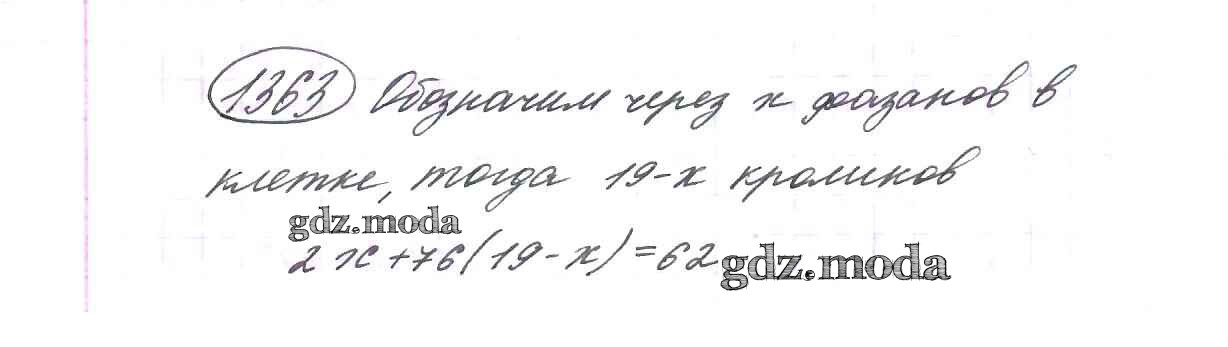 1363 Обозначим через x фазанов в
клетке, тогда 19-x кроликов
gdz.moda
2x+76(19-x)=62 gdz.moda